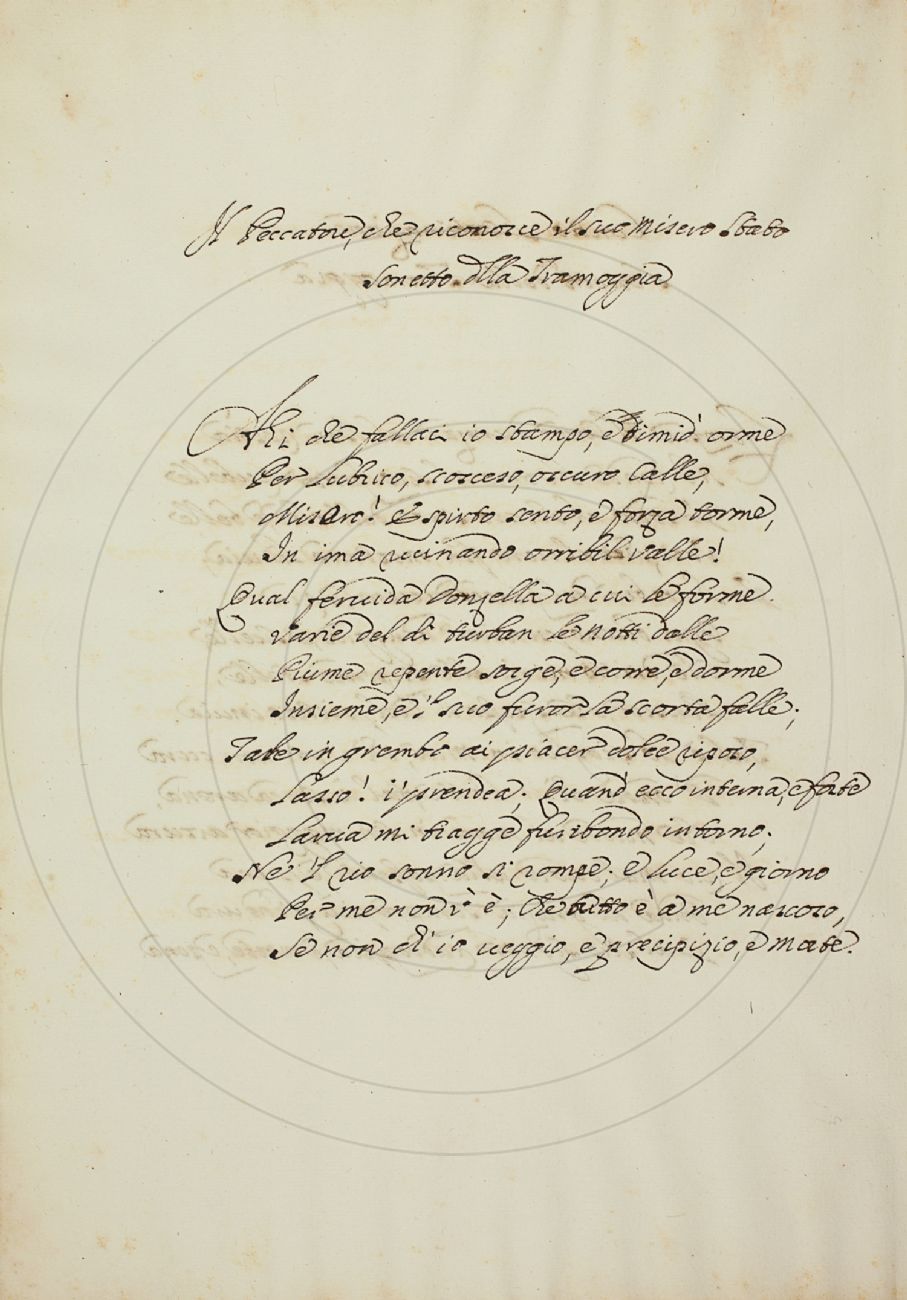 Il Peccatore, che riconosce il suo misero Stato
Sonetto della Tramoggia
Ahi che fallaci io stampo, e timid' orme
Per Lubrico, scosceso, oscuro Calle,
Misero! E spirto sento, e forza torme,
In ima ruinando orribil valle!
Qual fervida Donzella a cui le forme
varie del dì turban le Notti dalle
Piume repente sorge, e corre, e dorme
Insieme, e 'l suo furor la scorta falle;
Tale in grembo ai piacer dolce riposo,
Lasso! i' prendea; Quand' ecco interna, e forte
Larva mi tragge furibondo intorno;
Nè 'l rio sonno si rompe; e Luce, e giorno
Per me non v' è; Che tutto è a me nascoso,
Se non ch' io veggio, e precipizio, e Morte.